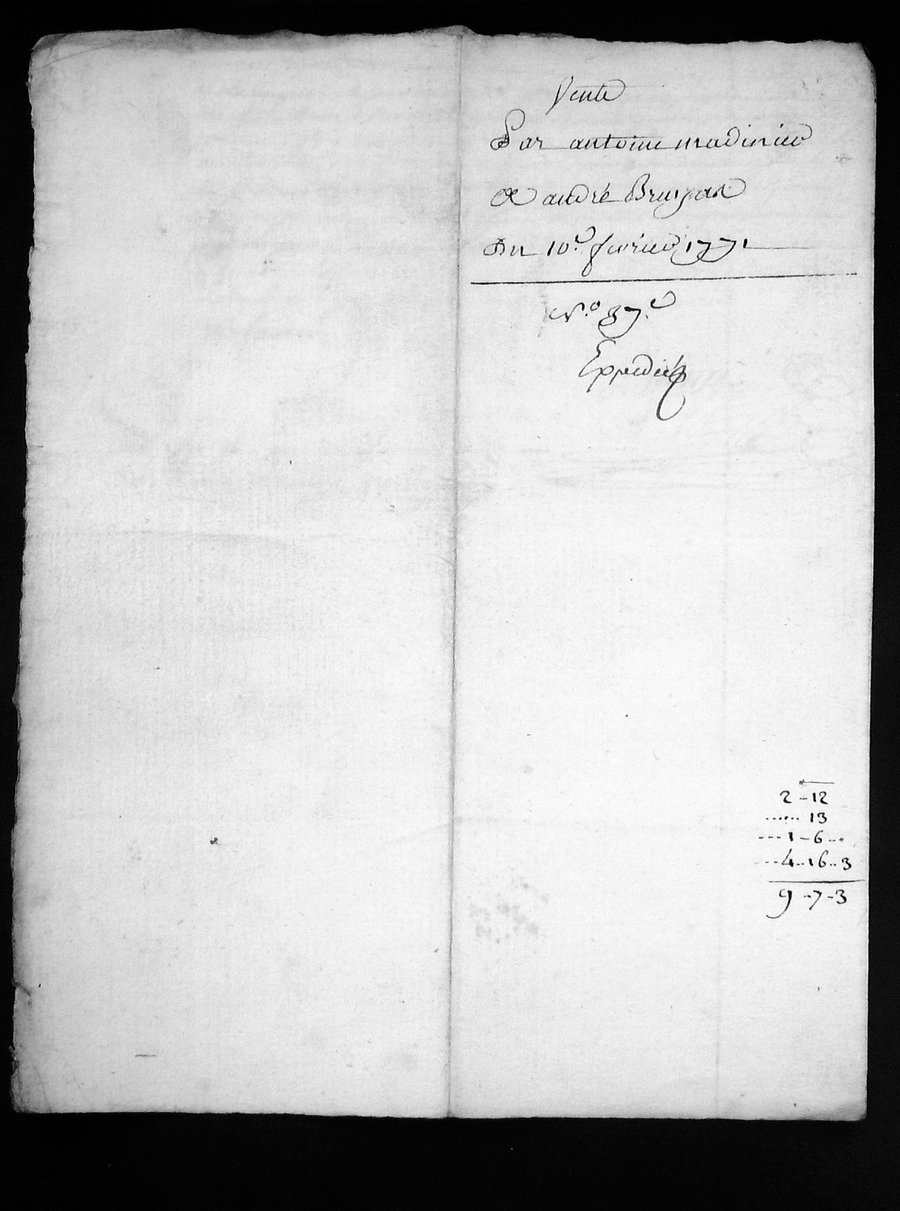 Vente
Par antoine madinier
a andré Bruyas
Du 10.e fevrier 1771
N.o 37.e
Expediée
2 - 12
..... 13
... 1 - 6 ...
... 4 .. 16 .. 3
9 - 7 - 3